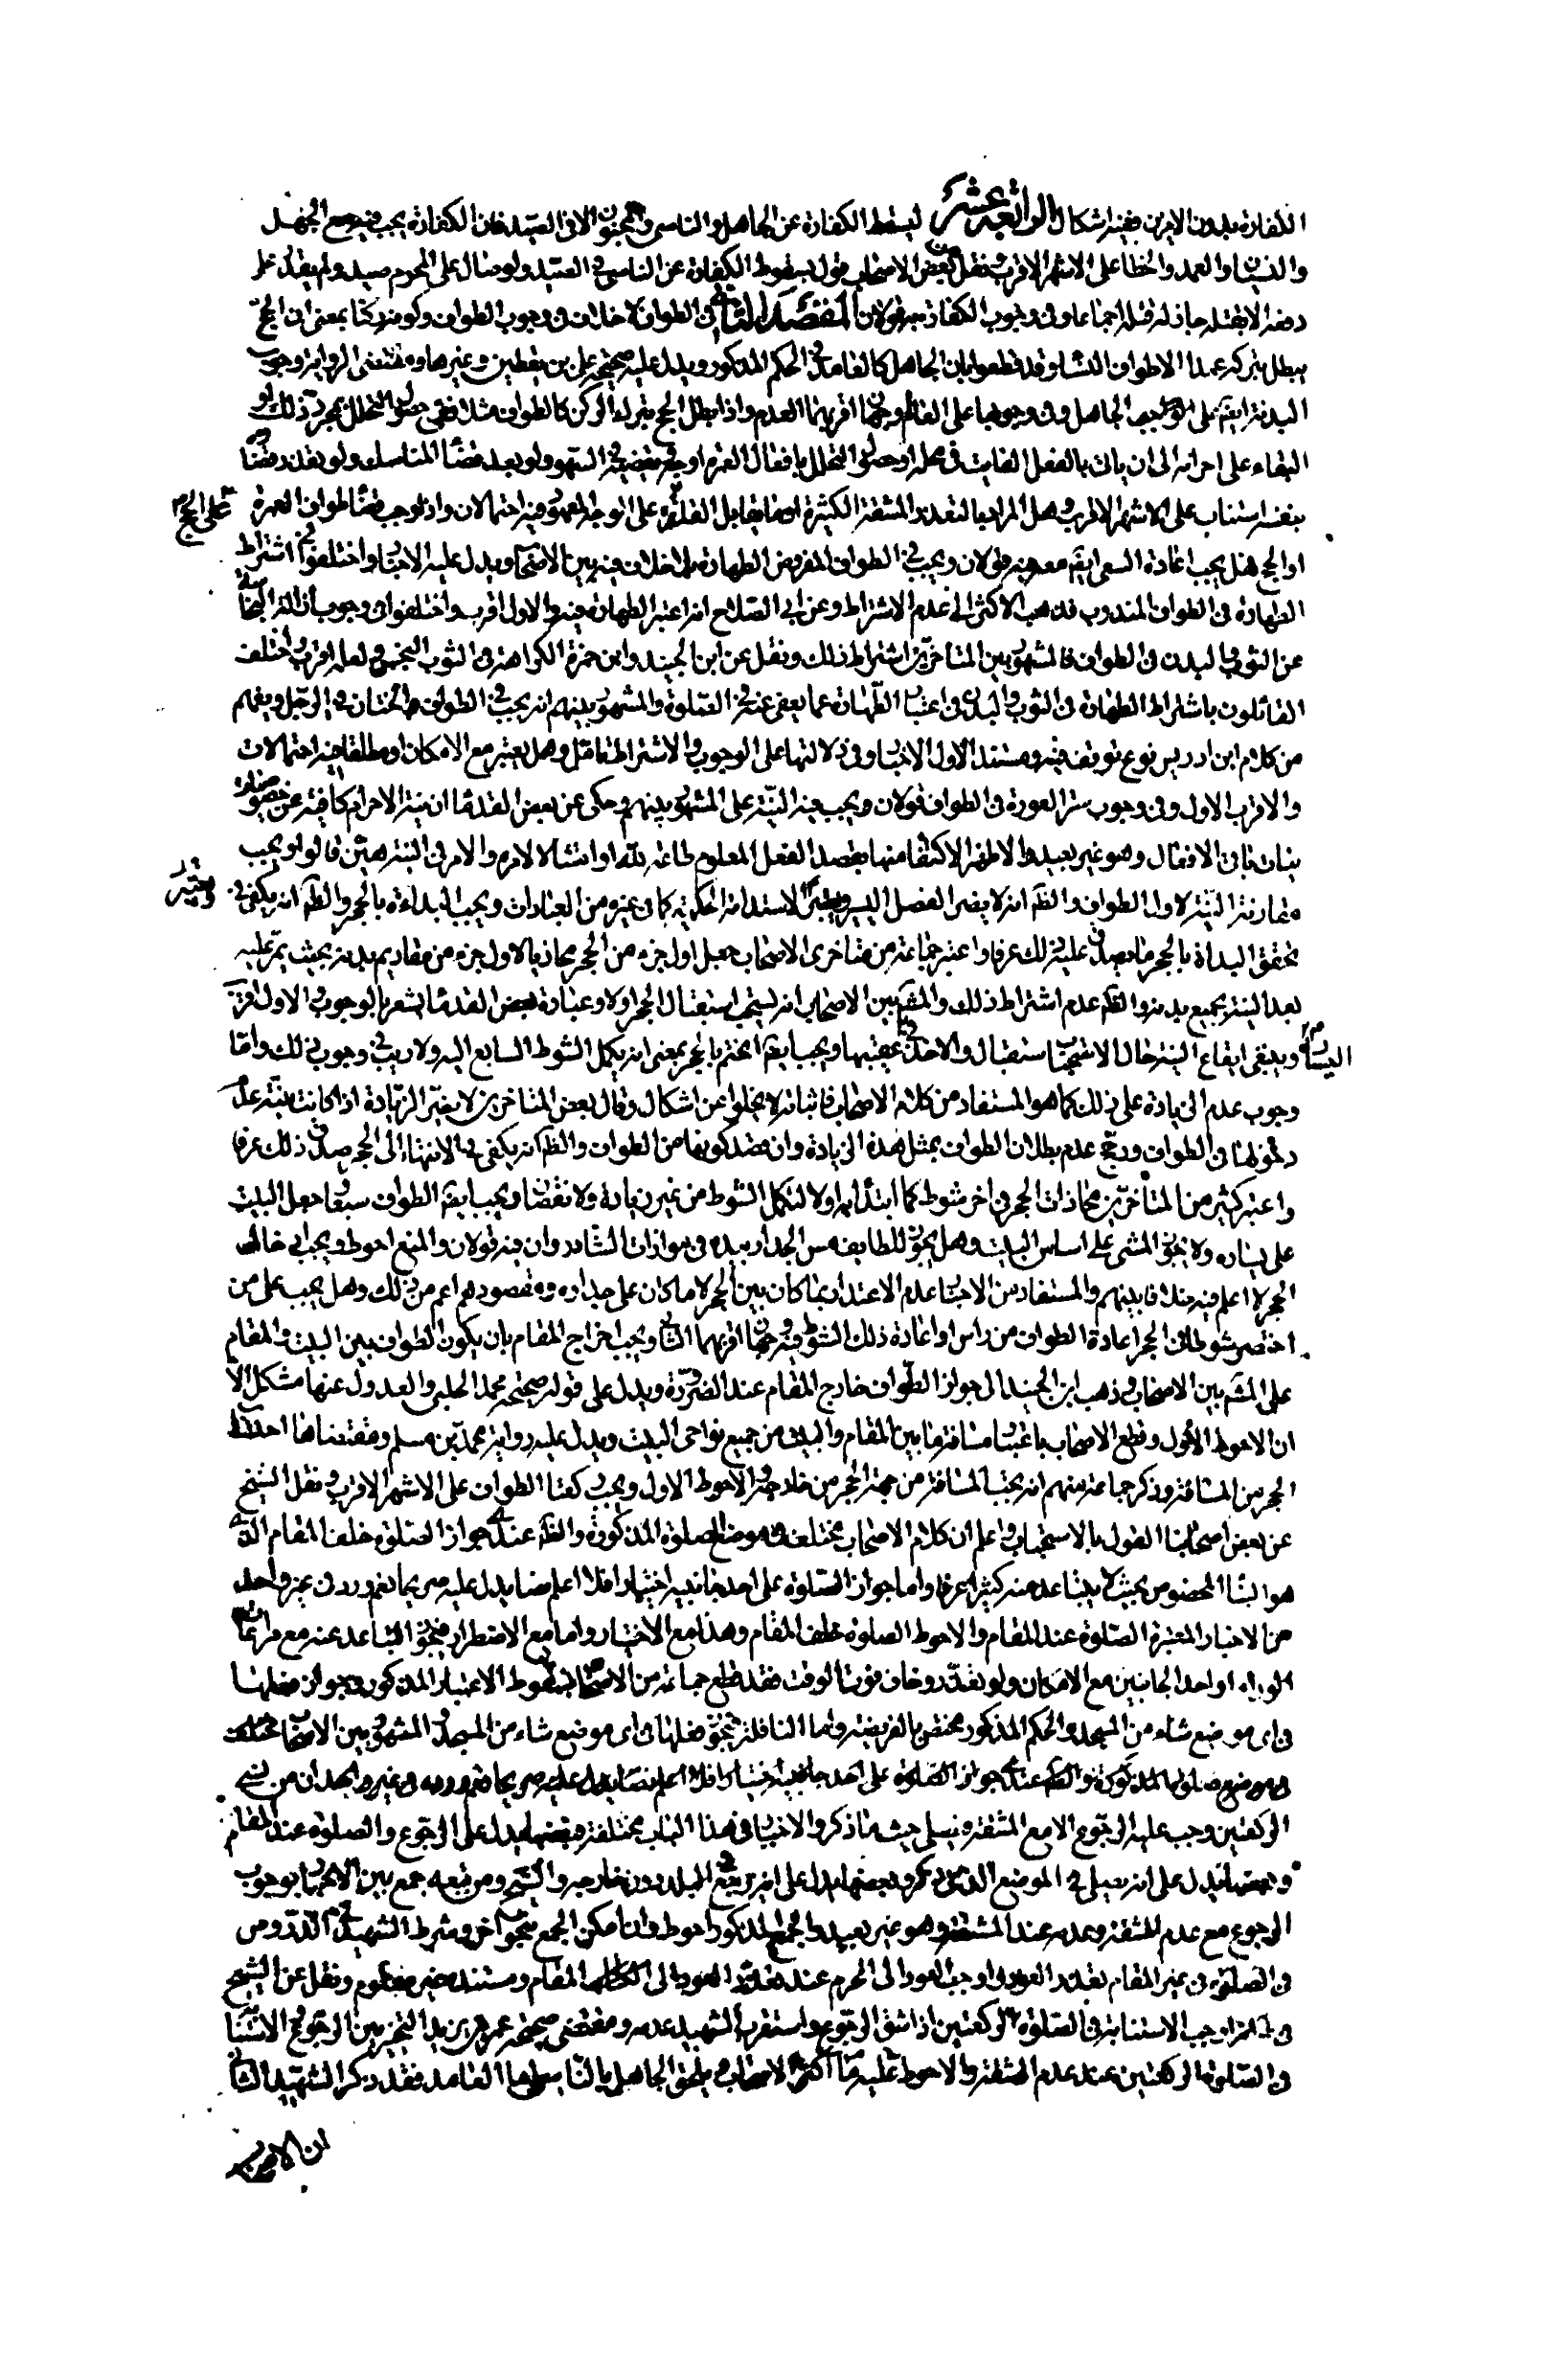 الكفارة بدون الامرين ففيه اشكال الرابعة عشر لسقط الكفارة عن الجاهل والناسى والمجنون الا فى الصيد فان الكفارة يجب فيه مع الجهل
والنسيان والعمد والخطا على الاشهر الاقرب ونقل عن بعض الاصحاب قول بسقوط الكفارة عن الناسى فى الصيد ولو صال على المحرم صيد ولم يقدر على
دفعه الا بقتله جاز له قتله اجماعا وفى وجوب الكفارة به قولان المقصد الثانى فى الطواف لا خلاف فى وجوب الطواف وكونه ركنا بمعنى ان الحج
يبطل بتركه عمدا الا طواف النساء وقد قطعوا بان الجاهل كالعامد فى الحكم المذكور ويدل عليه صحيحة على بن يقطين وغيرها ومقتضى الرواية وجوب
البدنة ايضا على الجاهل وفى وجوبها على العالم وجهان اقربهما العدم واذا بطل الحج بترك الركن كالطواف مثلا ففى حصول التحلل بمجرد ذلك او
البقاء على احرامه الى ان ياتى بالفعل الفايت فى محله او حصول التحلل بافعال العمرة اوجه ويقضيه فى السهو ولو بعد قضاء المناسك ولو تعذر قضاه
بنفسه استناب على الاشهر الاقرب وهل المراد بالتعذر المشقة الكثيرة او ما يقابل القدرة على الوجه المعهود فيه احتمالان واذا وجب قضاء طواف العمرة
او الحج هل يجب اعادة السعى ايضا معه فيه قولان ويجب فى الطواف المفروض الطهارة بلا خلاف فيه بين الاصحاب ويدل عليه الاخبار واختلفوا فى اشتراط
الطهارة فى الطواف المندوب فذهب الاكثر الى عدم الاشتراط وعن ابى الصلاح انه اعتبر الطهارة فيه والاول اقرب واختلفوا فى وجوب ازالة النجاسة
عن الثوب والبدن فى الطواف فالمشهور بين المتاخرين اشتراط ذلك ونقل عن ابن الجنيد وابن حمزة الكراهة فى الثوب النجس ولعله اقرب واختلف
القائلون باشتراط الطهارة فى الثوب والبدن فى اعتبار الطهارة عما يعفى عنه فى الصلوة والمشهور بينهم انه يجب فى الطواف الختان فى الرجل ويفهم
من كلام ابن ادريس نوع توقف فيه ومستند الاول الاخبار وفى دلالتها على الوجوب والاشتراط تامل وهل يعتبر مع الامكان او مطلقا فيه احتمالات
والاقرب الاول وفى وجوب ستر العورة فى الطواف قولان ويجب فيه النية على المشهور بينهم وحكى عن بعض القدماء ان نية الاحرام كافية عن خصوص
نيات باقى الافعال وهو غير بعيد والاظهر الاكتفاء منها بقصد الفعل المعلوم طاعة لله او امتثالا لامره والامر فى النية هين قالوا ويجب
مقارنة النية لاول الطواف والظاهر انه لا يضر الفصل اليسير ويعتبر الاستدامة الحكمية كما فى غيره من العبادات ويجب البداءة بالحجر والظاهر انه يكفى فى
تحقق البداءة بالحجر ما يصدق عليه ذلك عرفا واعتبر جماعة من متاخرى الاصحاب جعل اول جزء من الحجر محاذيا لاول جزء من مقاديم بدنه بحيث يمر عليه
بعد النية بجميع بدنه والظاهر عدم اشتراط ذلك والمشهور بين الاصحاب انه يستحب استقبال الحجر اولا وعبارة بعض القدماء يشعر بالوجوب والاول اقرب
وينبغى ايقاع النية حال الاستقبال والاخذ فى اليسار عقيبها ويجب ايضا الختم بالحجر بمعنى انه يكمل الشوط السابع اليه ولا ريب فى وجوب ذلك واما
وجوب عدم الزيادة على ذلك كما هو المستفاد من كلام الاصحاب فاثباته لا يخلوا عن اشكال وقال بعض المتاخرين لا يضر الزيادة اذا كانت بنية عدم
دخولها فى الطواف ورجح عدم بطلان الطواف بمثل هذه الزيادة وان قصد كونها من الطواف والظاهر انه يكفى فى الانتهاء الى الحجر صدق ذلك عرفا
واعتبر كثير من المتاخرين محاذات الحجر فى اخر شوط كما ابتدا به اولا لتكمل الشوط من غير زيادة ولا نقصان ويجب ايضا الطواف سبعا وجعل البيت
على يساره ولا يجوز المشى على اساس البيت وهل يجوز للطايف مس الجدار بيده فى موازات الشاذروان فيه قولان والمنع احوط ويجب ادخال
الحجر لا اعلم فيه خلافا بينهم والمستفاد من الاخبار عدم الاعتداد بما كان بين الحجر لا ما كان على جداره ومقصودهم اعم من ذلك وهل يجب على من
اختصر شوطا فى الحجر اعادة الطواف من راس او اعادة ذلك الشوط فيه وجهان اقربهما الثانى ويجب اخراج المقام بان يكون الطواف بين البيت والمقام
على المشهور بين الاصحاب وذهب ابن الجنيد الى جواز الطواف خارج المقام عند الضرورة ويدل على قوله صحيحة محمد الحلبى والعدول عنها مشكل الا
ان الاحوط الاول وقطع الاصحاب باعتبار مسافة ما بين المقام والبيت من جميع نواحى البيت ويدل عليه رواية محمد بن مسلم ومقتضاها احتساب
الحجر من المسافة وذكر جماعة منهم انه يحتسب المسافة من جهة الحجر من خارجه والاحوط الاول ويجب ركعتا الطواف على الاشهر الاقرب ونقل الشيخ
عن بعض اصحابنا القول بالاستحباب واعلم ان كلام الاصحاب مختلف فى موضع الصلوة المذكورة والظاهر عندى جواز الصلوة خلف المقام الذى
هو البناء المخصوص بحيث لا يتباعد منه كثيرا عرفا واما جواز الصلوة على احد جانبيه اختيارا فلا اعلم نصا يدل عليه صريحا نعم ورد فى غير واحد
من الاخبار المعتبرة الصلوة عند المقام والاحوط الصلوة خلف المقام وهذا مع الاختيار واما مع الاضطرار فيجوز التباعد عنه مع مراعاة
الوراء او احد الجانبين مع الامكان ولو تعذر وخاف فوت الوقت فقد قطع جماعة من الاصحاب بسقوط الاعتبار المذكور وجواز فعلها
فى اى موضع شاء من المسجد والحكم المذكور مختص بالفريضة واما النافلة فيجوز فعلها فى اى موضع شاء من المسجد والمشهور بين الاصحاب
فى موضع صلوتها المذكورة والظاهر عندى جواز الصلوة على احد جانبيه اختيارا فلا اعلم نصا يدل عليه صريحا نعم ورد فى غير واحد ان من نسى
الركعتين وجب عليه الرجوع الا مع المشقة فيصلى حيث ما ذكر والاخبار فى هذا الباب مختلفة فبعضها يدل على الرجوع والصلوة عند المقام
وبعضها يدل على انه يصلى فى الموضع الذى ذكر وبعضها يدل على انه يرجع فى البلد دون خارجه والشيخ ومن تبعه جمع بين الاخبار بوجوب
الرجوع مع عدم المشقة وعدمه عند المشقة وهو غير بعيد والجمع المذكور احوط وان امكن الجمع بنحو اخر وشرط الشهيد فى الدروس
فى الصلوة فى غير المقام تعذر العود واوجب العود الى الحرم عند تعذر العود الى المقام ومستنده غير معلوم ونقل عن الشيخ
فى المبسوط انه اوجب الاستنابة فى الصلوة الركعتين اذا شق الرجوع واستقرب الشهيد عدمه ومقتضى صحيحة عمر بن يزيد التخيير بين الرجوع والاستنابة
فى الصلوة الركعتين عند عدم المشقة والاحوط ما عليه اكثر الاصحاب ويلحق الجاهل بالناسى واما العامد فقد ذكر الشهيد الثانى
ان الاصحاب